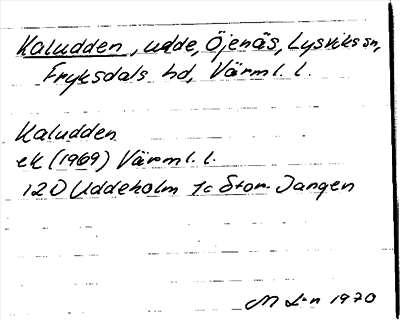 Kaludden, udde, Öjenäs, Lysviks sn,
Fryksdals hd, Värml. l.
Kaludden
ek (1969) Värml. l.
12D Uddeholm 1c Stor-Jangen
M L-n 1970